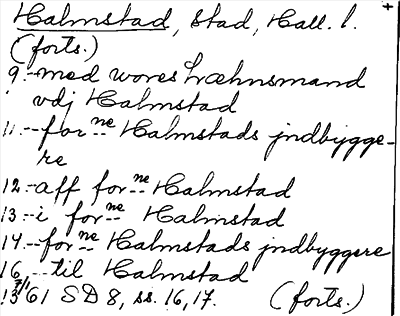 Halmstad, stad, Hall. l.
(forts.)
9.-med wores Læhnsmand
vdj Halmstad
11.--for ne Halmstads jndbygge-
re
12.-aff for ne Halmstad
13.-i for ne Halmstad
14.--for ne Halmstads jndbyggere
16.--til Halmstad
13/7 1361 SD 8, ss. 16, 17. (forts.)